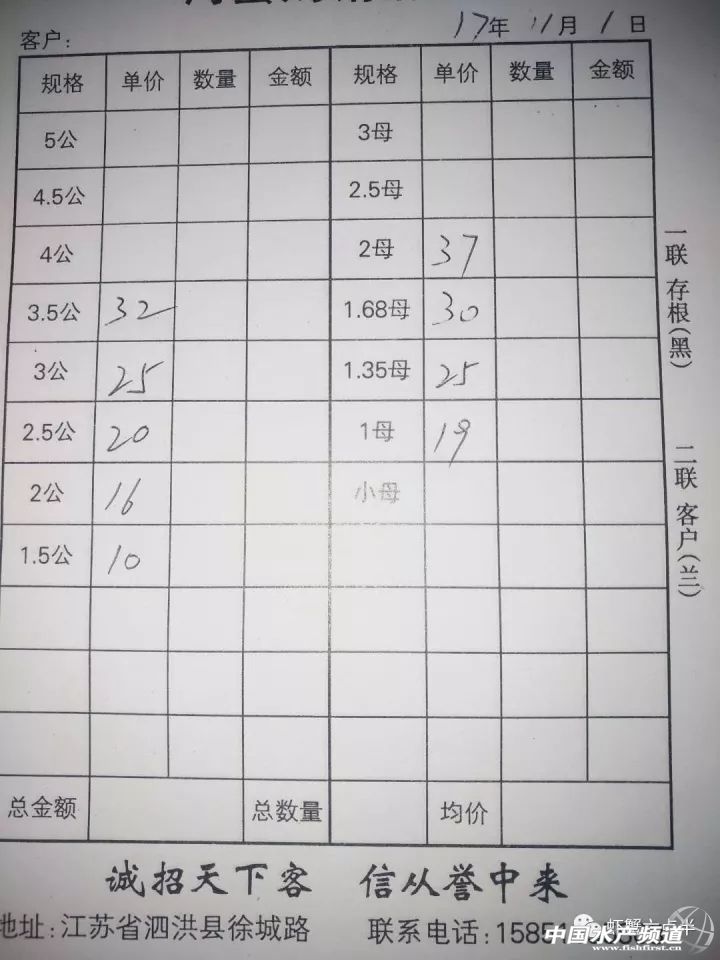 17年 11月 1日
客户:
规格 单价 数量 金额 规格 单价 数量 金额
5公 3母
4.5公 2.5母
4公 2母 37
3.5公 32 1.68母 30
3公 25 1.35母 25
2.5公 20 1母 19
2公 16 小母
1.5公 10
总金额 总数量 均价
一联 存根(黑) 二联 客户(兰)
诚招天下客 信从誉中来
地址:江苏省泗洪县徐城路 联系电话:15851
虾蟹六点半
中国水产频道
www.fishfirst.cn